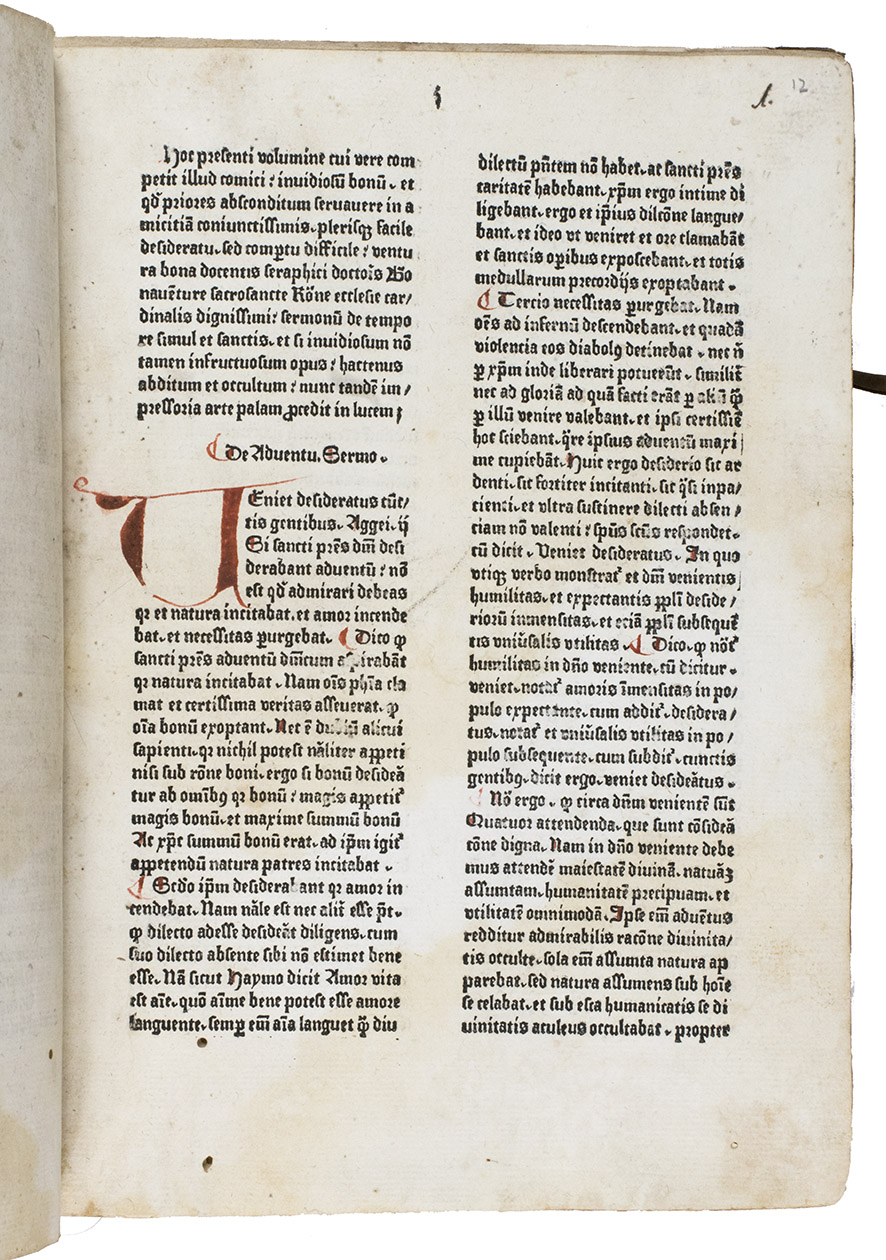 1.
12
Hoc presenti volumine cui vere com
petit illud comici : inuidiosū bonū . et
qđ priores absconditum seruauere in a
micitiā coniunctissimis. plerisqꝫ facile
desideratu. sed compertu difficile : ventu
ra bona docentis seraphici doctoris Bo
nauēture sacrosancte Rōne ecclesie car/
dinalis dignissimi: sermonū de tempo
re simul et sanctis. et si inuidiosum nō
tamen infructuosum opus : hactenus
abditum et occultum : nunc tandē im/
pressoria arte palam ꝓcedit in lucem ;
De Aduentu. Sermo .
VEniet desideratus cūc/
tis gentibus. Aggei. ij
Si sancti prēs dm̄ desi
derabant aduentū : nō
est qđ admirari debeas
qꝛ et natura incitabat. et amor incende
bat. et necessitas ꝑurgebat. Dico ꝙ
sancti prēs aduentū dm̄icum aspirabāt
qꝛ natura incitabat . Nam oīs ph̄ia cla
mat et certissima veritas asseuerat. ꝙ
oīa bonū exoptant. Nec ē dubiū alicui
sapienti. qꝛ nichil potest nāliter appeti
nisi sub rōne boni. ergo si bonū desideā
tur ab omībꝯ qꝛ bonū : magis appetit᷑
magis bonū. et maxime summū bonū
At xp̄c summū bonū erat. ad ip̄m igit᷑
appetendū natura patres incitabat .
Scđo ip̄m desiderabant qꝛ amor in
cendebat. Nam nāle est nec alit᷑ esse pt̄.
ꝙ dilecto adesse desideāt diligens. cum
suo dilecto absente sibi nō estimet bene
esse. Nā sicut Haymo dicit Amor vita
est aīe. quō aīme bene potest esse amore
languente. semꝑ em̄ aīa languet qꝫ̄ diu
dilectū pn̄tem nō habet. at sancti prēs
caritatē habebant. xp̄m ergo intime di
ligebant. ergo et ip̄ius dilcōne langue/
bant. et ideo vt veniret et ore clamabāt
et sanctis oꝑibus exposcebant. et totis
medullarum precordijs exoptabant .
Tercio necessitas ꝑurgebat. Nam
oēs ad infernū descendebant. et quadā
violencia eos diabolꝯ detinebat . nec n̄
ꝑ xp̄m inde liberari potuerūt . similit᷑
nec ad gloriā ad quā facti erāt ꝑ aliū qꝫ̄
ꝑ illū venire valebant. et ipsi certissie
hoc sciebant. q̄re ipsius aduentū maxi
me cupiebāt. Huic ergo desiderio sic ar
denti. sic fortiter incitanti. sic q̄si inpa/
cienti. et vltra sustinere dilecti absen/
ciam nō valenti : sp̄us scūs respondet.
cū dicit . Veniet desideratus . In quo
vtiqꝫ verbo monstrat᷑ et dm̄ venientis
humilitas. et expectantis ppl̄i deside/
riorū inmensitas. et eciā ppl̄i subsequē
tis vniūsalis vtilitas . Dico. ꝙ not᷑
humilitas in dn̄o veniente. cū dicitur .
veniet. notat᷑ amoris īmensitas in po/
pulo expectante. cum addit᷑. desidera/
tus. notat᷑ et vniūsalis vtilitas in po/
pulo subsequente. cum subdit᷑ . cunctis
gentibꝯ. dicit ergo. veniet desideātus .
Nō ergo . ꝙ circa dn̄m venientē sūt
Quatuor attendenda. que sunt cōsideā
cōne digna. Nam in dn̄o veniente debe
mus attendē maiestatē diuinā. naturāꝫ
assumtam. humanitatē precipuam. et
vtilitatē omnimodā. Ipse em̄ aduētus
redditur admirabilis racōne diuinita/
tis occulte. sola em̄ assumta natura ap
parebat. sed natura assumens sub hoīe
se celabat. et sub esca humanitatis se di
uinitatis aculeus occultabat . propter